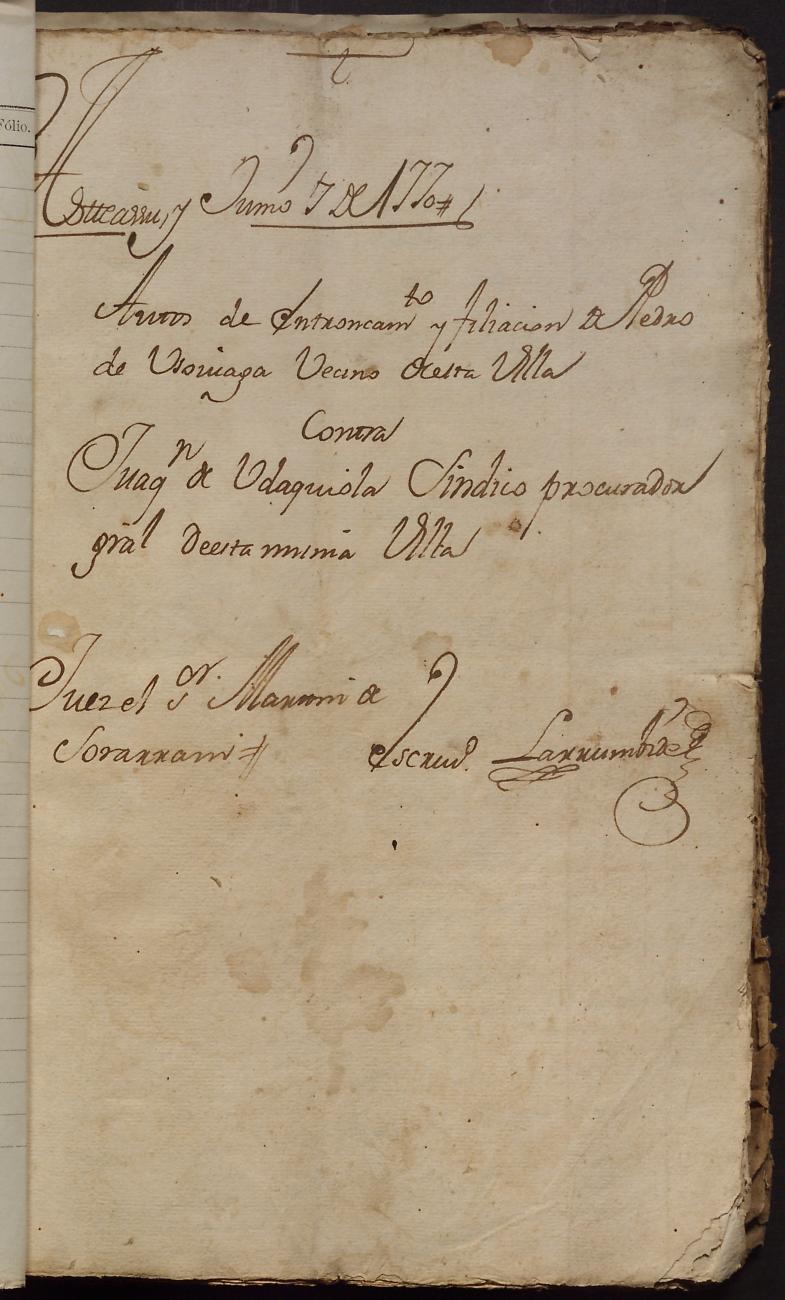 Fólio.
Astteasu, y Junio 7 de 1770#
Autos de Entroncam.to y filiacion de Pedro
de Usoviaga Vecino deesta Villa
Contra
Juaq.n de Vdaquiola Sindico procurador
gral deesta misma Villa
Juez el S.or Martin de
Sorarrain #
escriv.o Larrumbide